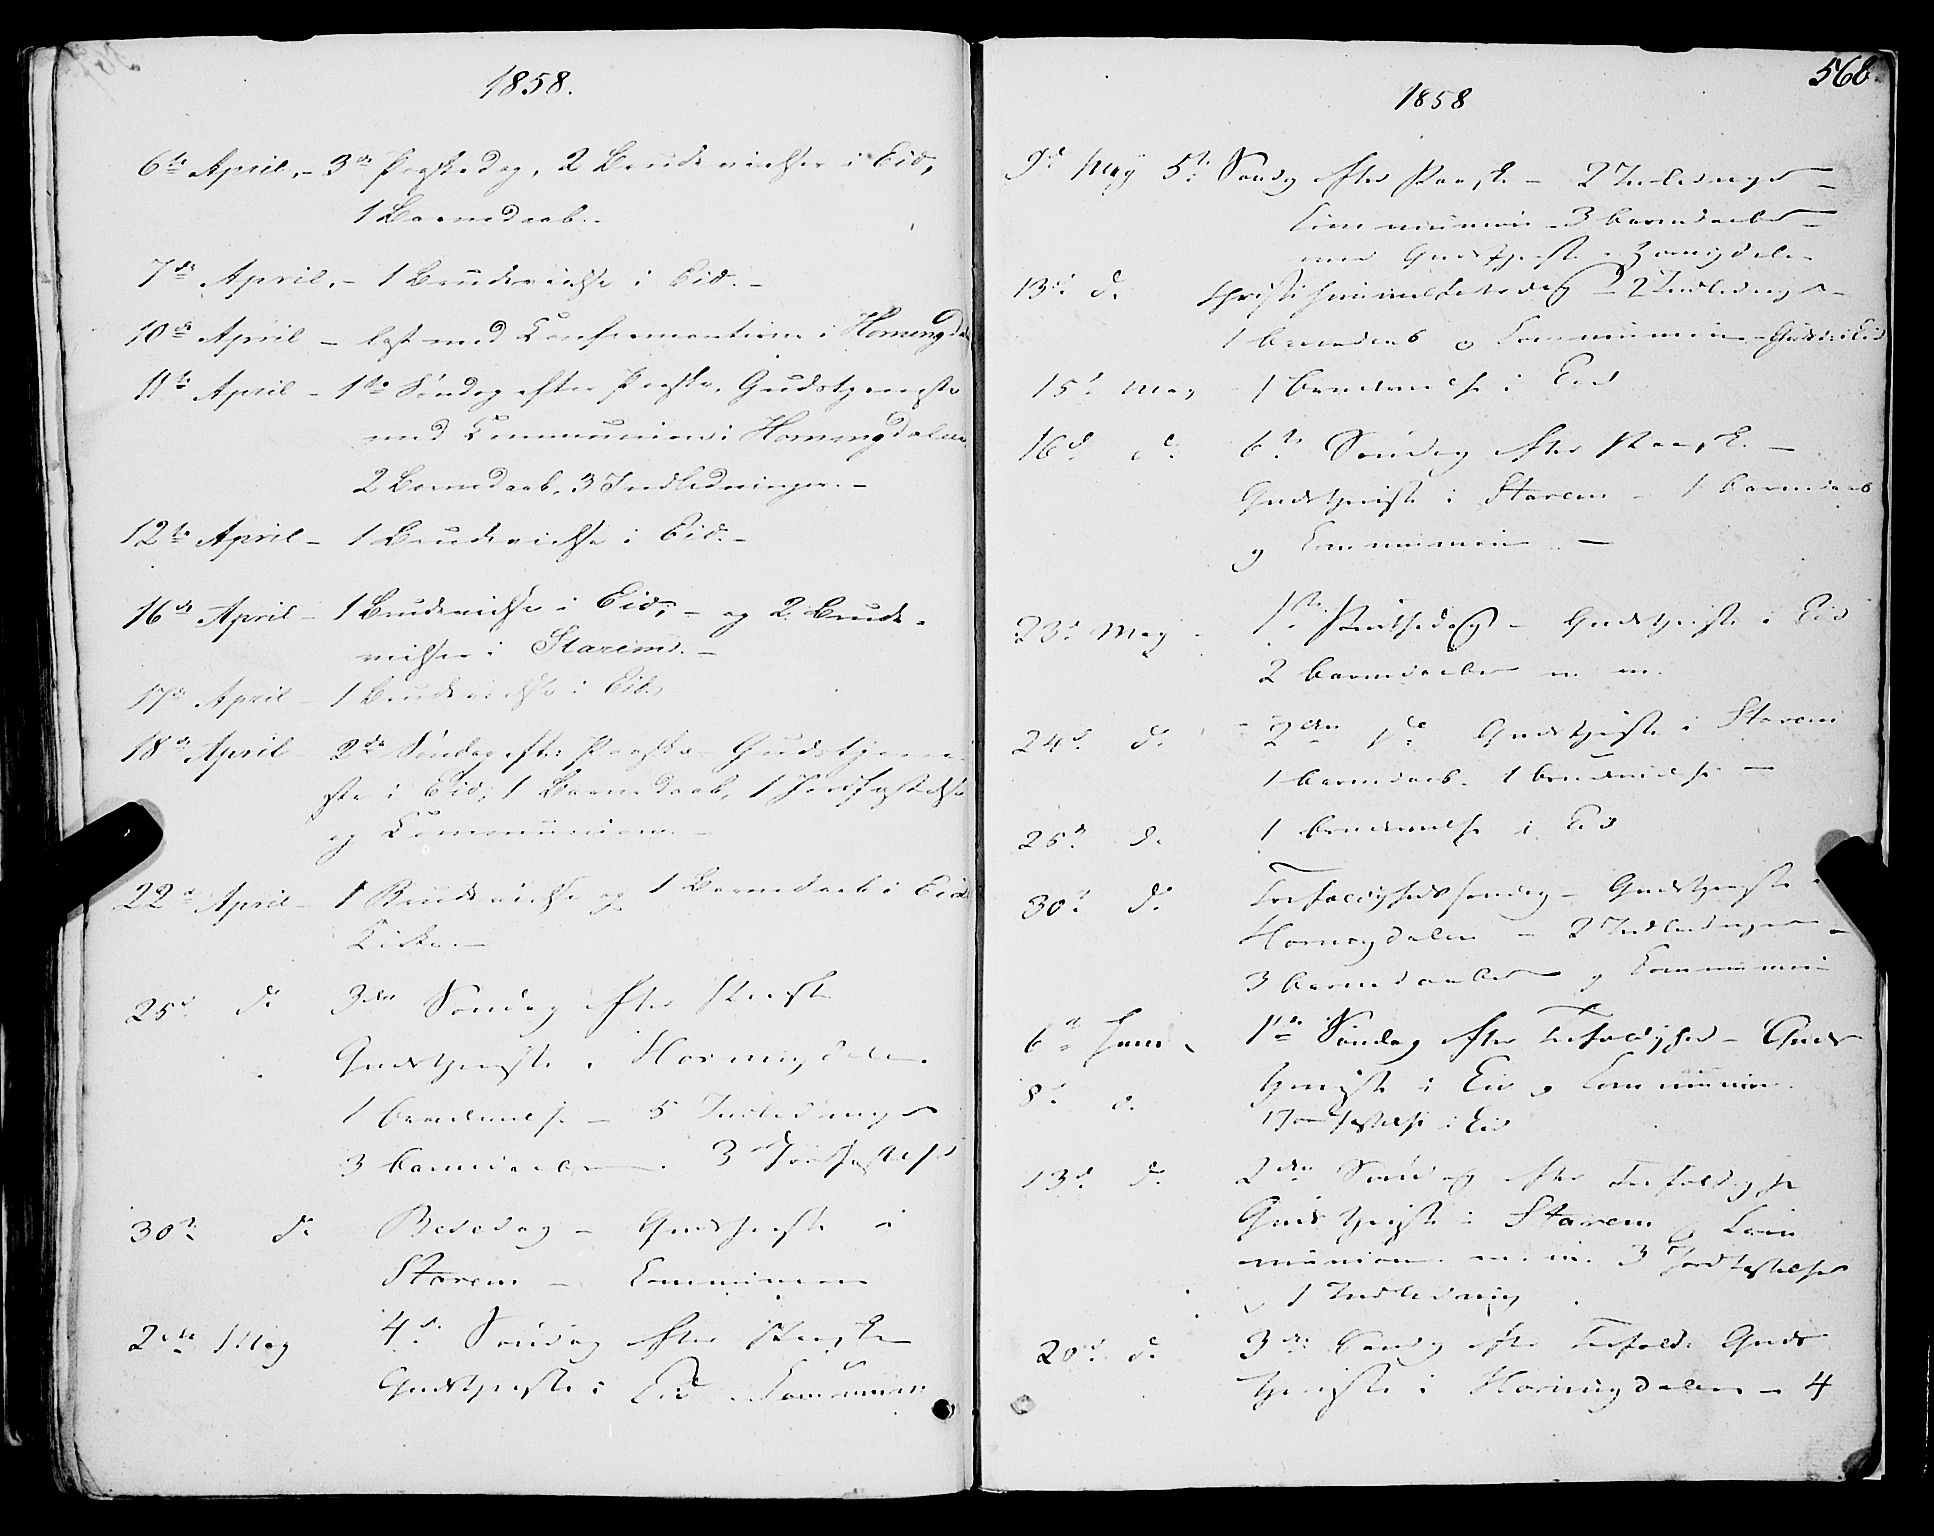 1858.
6te April. - 3die Paaskedag, 2 Brudevielser i Eid,
1 Barnedaab. -
7de April. - 1 Brudevielse i Eid. -
10de April - læst med Confirmanterne i Horningdal
11te April - 1ste Søndag efter Paaske. Gudstjeneste
med Communion i Horningdalen
2 Barnedaab, 3 Indledninger. -
12te April - 1 Brudevielse i Eid. -
16de April - 1 Brudevielse i Eid; - og 2 Brude-
vielser i Starems. -
17de April - 1 Brudevielse i Eid.
18de April - 2den Søndag eft: Paaske Gudstjene-
ste i Eid; 1 Barnedaab, 1 Jordfæstelse
og Communion. -
22de April - 1 Brudevielse og 1 Barnedaab i Eids
Kirke. -
25d do 3die Søndag efter Paaske
Gudstjeneste i Horningdalen
1 brudevielse - 5 Indledninger
3 barnedaaber. 3 Jordfæstelser
30te do Bededag - Gudstjeneste i
Starem - Communion
2den May 4d Søndag efter Paaske
Gudstjeneste i Eid - Communion
568.
1858
9d May 5te Søndag efter Paaske - 2 Indledninger -
Communion - 3 barnedaaber -
med Gudstjeneste i Horningdalen
13d do Christi himmelfartsdag - 2 Indledninger -
1 barnedaab og Communion - Gudstj: i Eid
15d May - 1 brudevielse i Eid
16d do 6te Søndag efter Paaske -
Gudstjeneste i Starem - 1 barnedaab
og Communion -
23d May - 1ste Pintsedag - Gudstjeneste i Eid
2 barnedaaber m. m.
24d do - 2den do Gudstjeneste i Starem
1 barnedaab. 1 brudevielse -
25d do 1 brudevielse i Eid
30te do Trefoldighedssøndag - Gudstjeneste i
Horningdalen - 2 Indledninger -
3 barnedaaber og Communion
6te Juni 1ste Søndag efter Trefoldighed - Guds
tjeneste i Eid og Communion.
8d do 1 Jordfæstelse i Eid
13d do 2den Søndag efter Trefoldighe
Gudstjeneste i Starem og Com
munion m. m. 3 Jordfæstelser
1 Indledning
20d do 3die Søndag efter Trefold: Guds
tjeneste i Horningdalen - 4